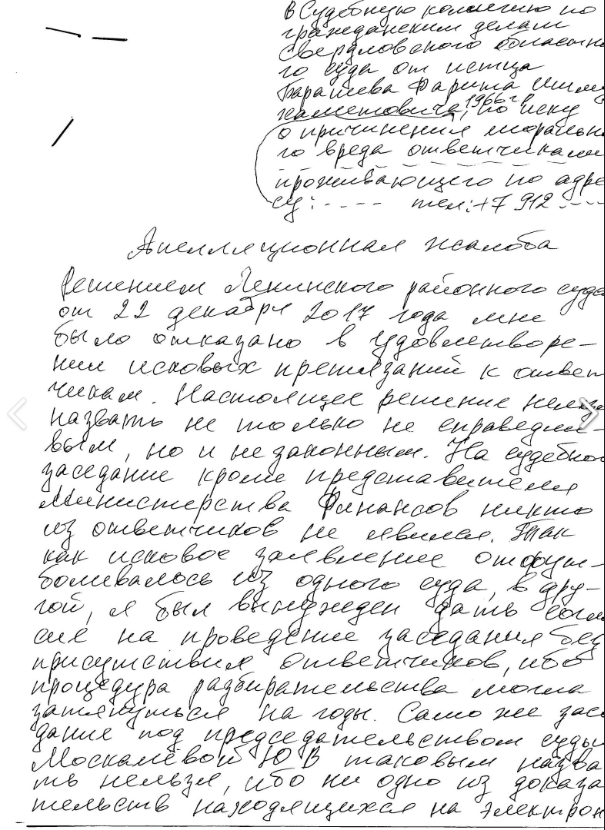 в Судебную коллегию по
гражданским делам
Свердловского областно
го суда от истца
Барашева Фарита
1966г по иску
о причинении моральн
го вреда ответчиками
проживающего по адре
су: ---- тел: +7 912 ----
Апелляционная жалоба
Решением Ленинского районного суда
от 22 декабря 2017 года мне
было отказано в удовлетворе-
нии исковых притязаний к ответ
чикам. Настоящее решение нель
назвать не только не справедли
вым, но и не законным. На судебное
заседание кроме представителя
Министерства Финансов никто
из ответчиков не явился. Так
как исковое заявление отфут-
боливалось из одного суда, в дру-
гой, я был вынужден дать согла
сие на проведение заседания без
присутствия ответчиков, ибо
процедура разбирательства могла
затянуться на годы. Само же засе
дание под председательством судьи
Москалёвой Ю.В таковым назва
ть нельзя, ибо ни одно из доказа
тельств находящихся на электрон